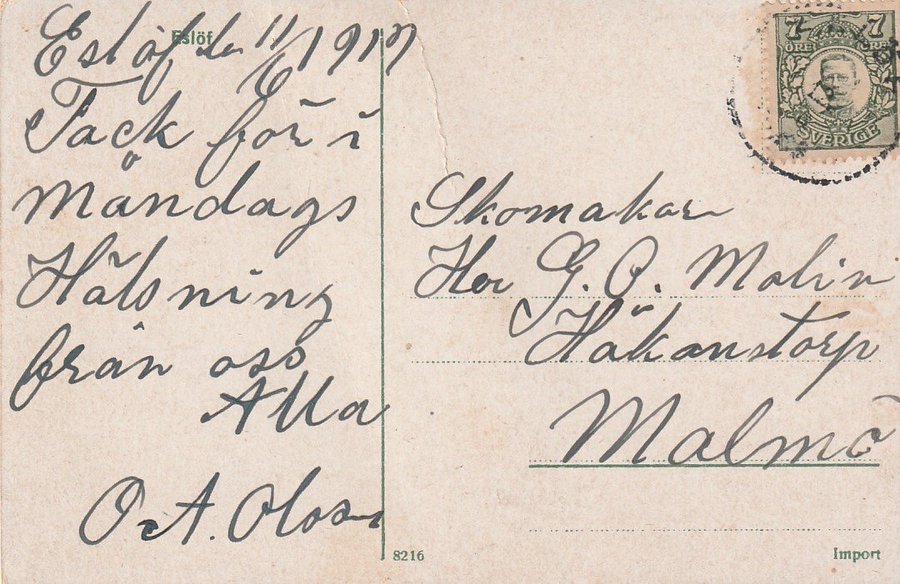 Eslöf
Eslöf den 11/6 1917
Tack för i
Måndags
Hälsning
från oss
Alla
O. A. Olosn
7 7
ÖRE ÖRE
SVERIGE
Skomakare
Her G. O. Malin
Håkanstorp
Malmö
8216
Import